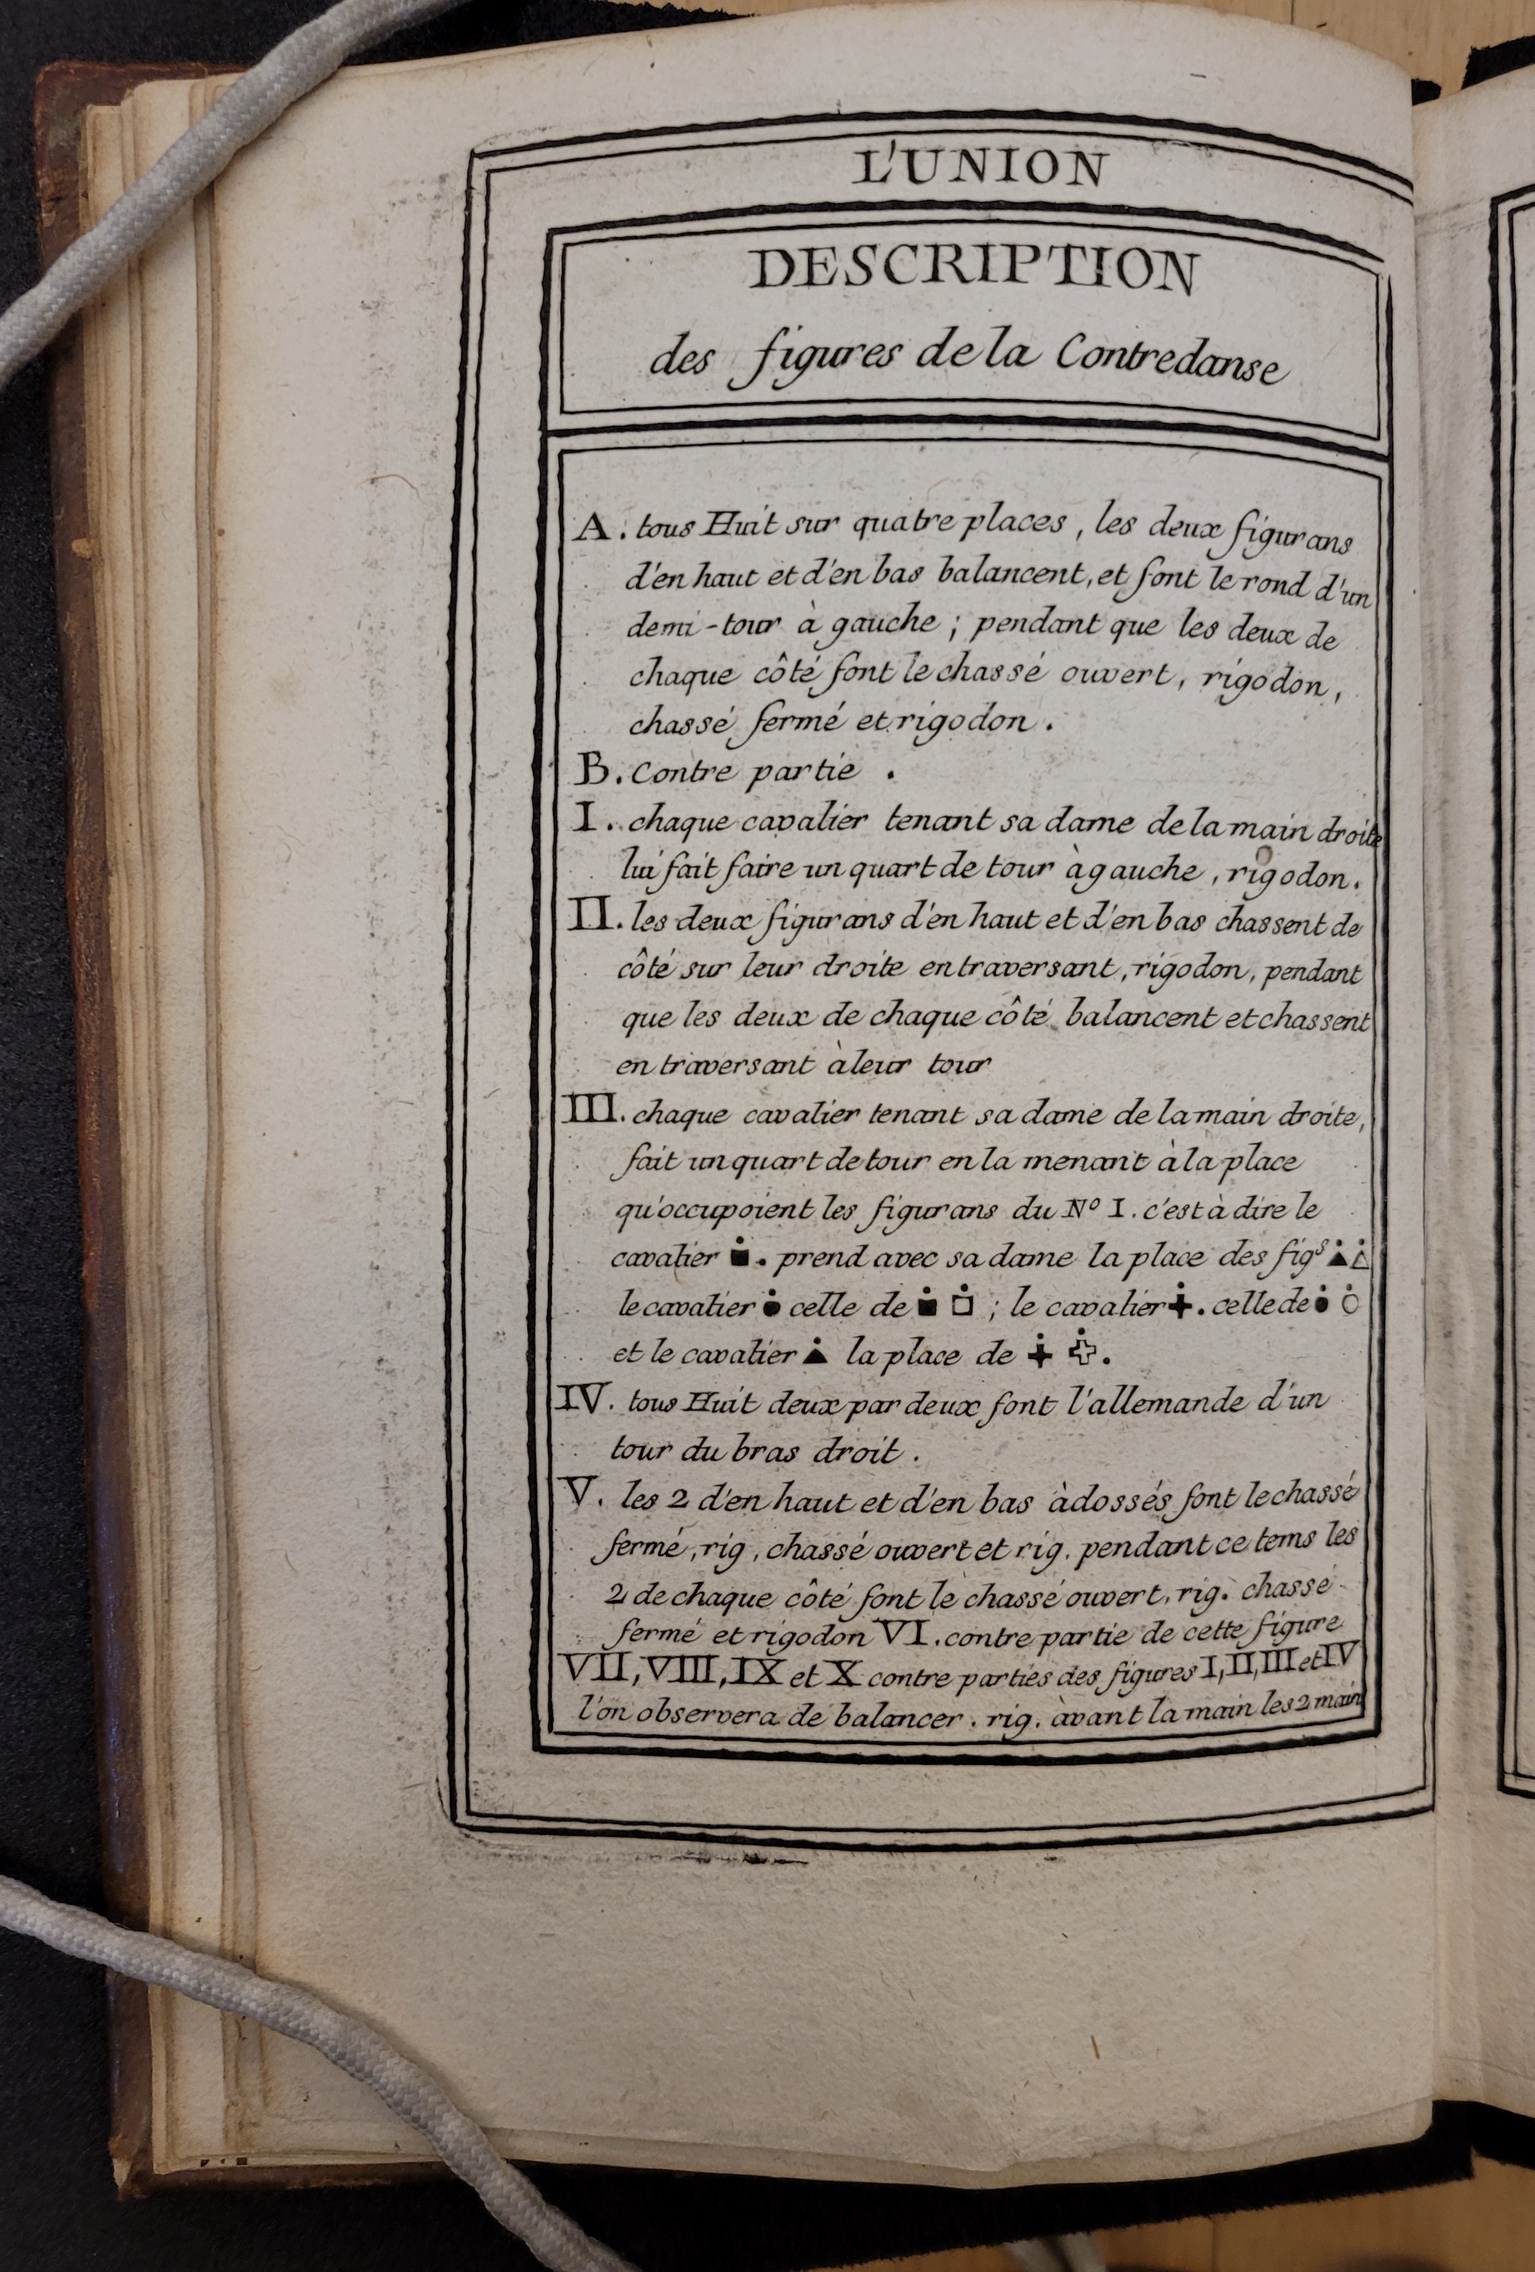 L'UNION
DESCRIPTION
des figures de la Contredanse
A. tous Huit sur quatre places, les deux figurans
d'en haut et d'en bas balancent, et font le rond d'un
demi-tour à gauche; pendant que les deux de
chaque côté font le chassé ouvert, rigodon,
chassé fermé et rigodon.
B. Contre partie.
I. chaque cavalier tenant sa dame de la main droite
lui fait faire un quart de tour à gauche, rigodon.
II. les deux figurans d'en haut et d'en bas chassent de
côté sur leur droite en traversant, rigodon, pendant
que les deux de chaque côté balancent et chassent
en traversant à leur tour
III. chaque cavalier tenant sa dame de la main droite,
fait un quart de tour en la menant à la place
qu'occupoient les figurans du Nº I. c'est à dire le
cavalier ■. prend avec sa dame la place des figˢ ▲ △
le cavalier ● celle de ■ □; le cavalier ✚. celle de ● ○
et le cavalier ▲ la place de ✚ ✜.
IV. tous Huit deux par deux font l'allemande d'un
tour du bras droit.
V. les 2 d'en haut et d'en bas àdossés font le chassé
fermé, rig, chassé ouvert et rig. pendant ce tems les
2 de chaque côté font le chassé ouvert, rig. chassé
fermé et rigodon VI. contre partie de cette figure
VII, VIII, IX et X contre parties des figures I, II, III et IV
l'on observera de balancer. rig. àvant la main les 2 main